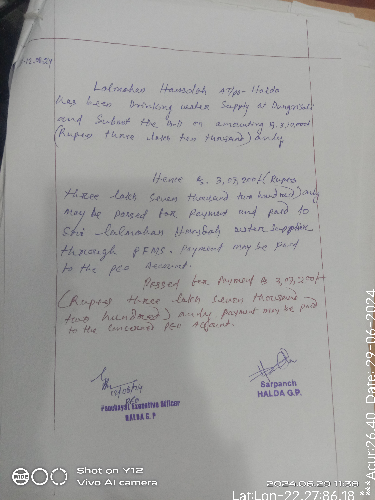 12.06.24
Lalmahan Hansdah AT/po- Halda
has been Drinking water Supply at
and Submit the Bill on amounting Rs. 3,10,000/-
(Rupees three lakh ten thousand) only
Hence Rs. 3,07,200/- (Rupees
three lakh seven thousand two hundred) only
may be passed for payment and paid to
Shri Lalmahan Hansdah water supplier
through PFMS. Payment may be paid
to the PEO Account.
Passed for Payment Rs 3,07,200/-
(Rupees three lakh seven thousand
two hundred) only payment may be paid
to the PEO Account.
Panchayat Executive Officer
HALDA G.P
Sarpanch
HALDA G.P.
Shot on Y12
Vivo AI camera
2024.06.20 11:39
Lat:Lon-22.27:86.18
***Acur:26.40 Date: 29-06-2024